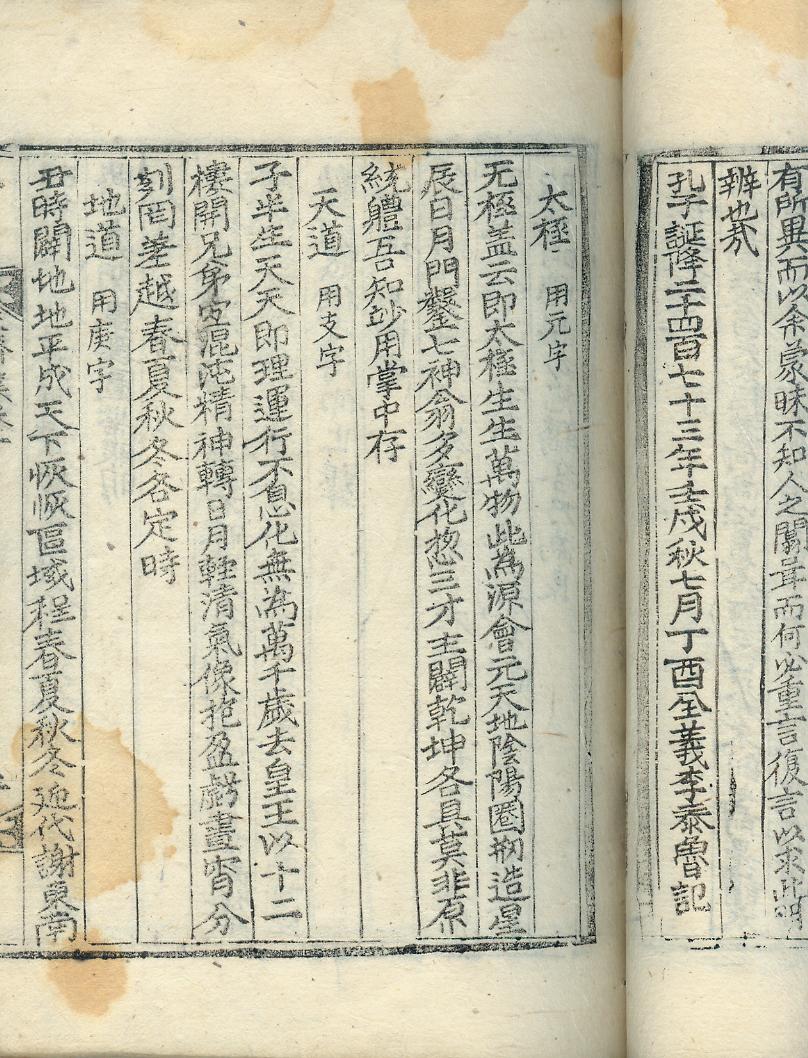 有所異而以余蒙昧不知人之關茸而何必重言復言以求此
辨也㢤
孔子誕降二千四百七十三年壬戌秋七月丁酉全義李泰魯記
太極 用元字
无極盖云即太極生生萬物此為源會元天地陰陽圈刱造星
辰日月門鑿七神翁多變化揔三才主闢乾坤各具莫非原
統體吾知妙用掌中存
天道 用支字
子半生天天即理運行不息化無為萬千歲去皇王以十二
樓開兄弟安混沌精神轉日月輕清氣像抱盈虧晝宵分
刻罔差越春夏秋冬各定時
地道 用庚字
丑時闢地地平成天下恢恢區域程春夏秋冬迎代謝東南